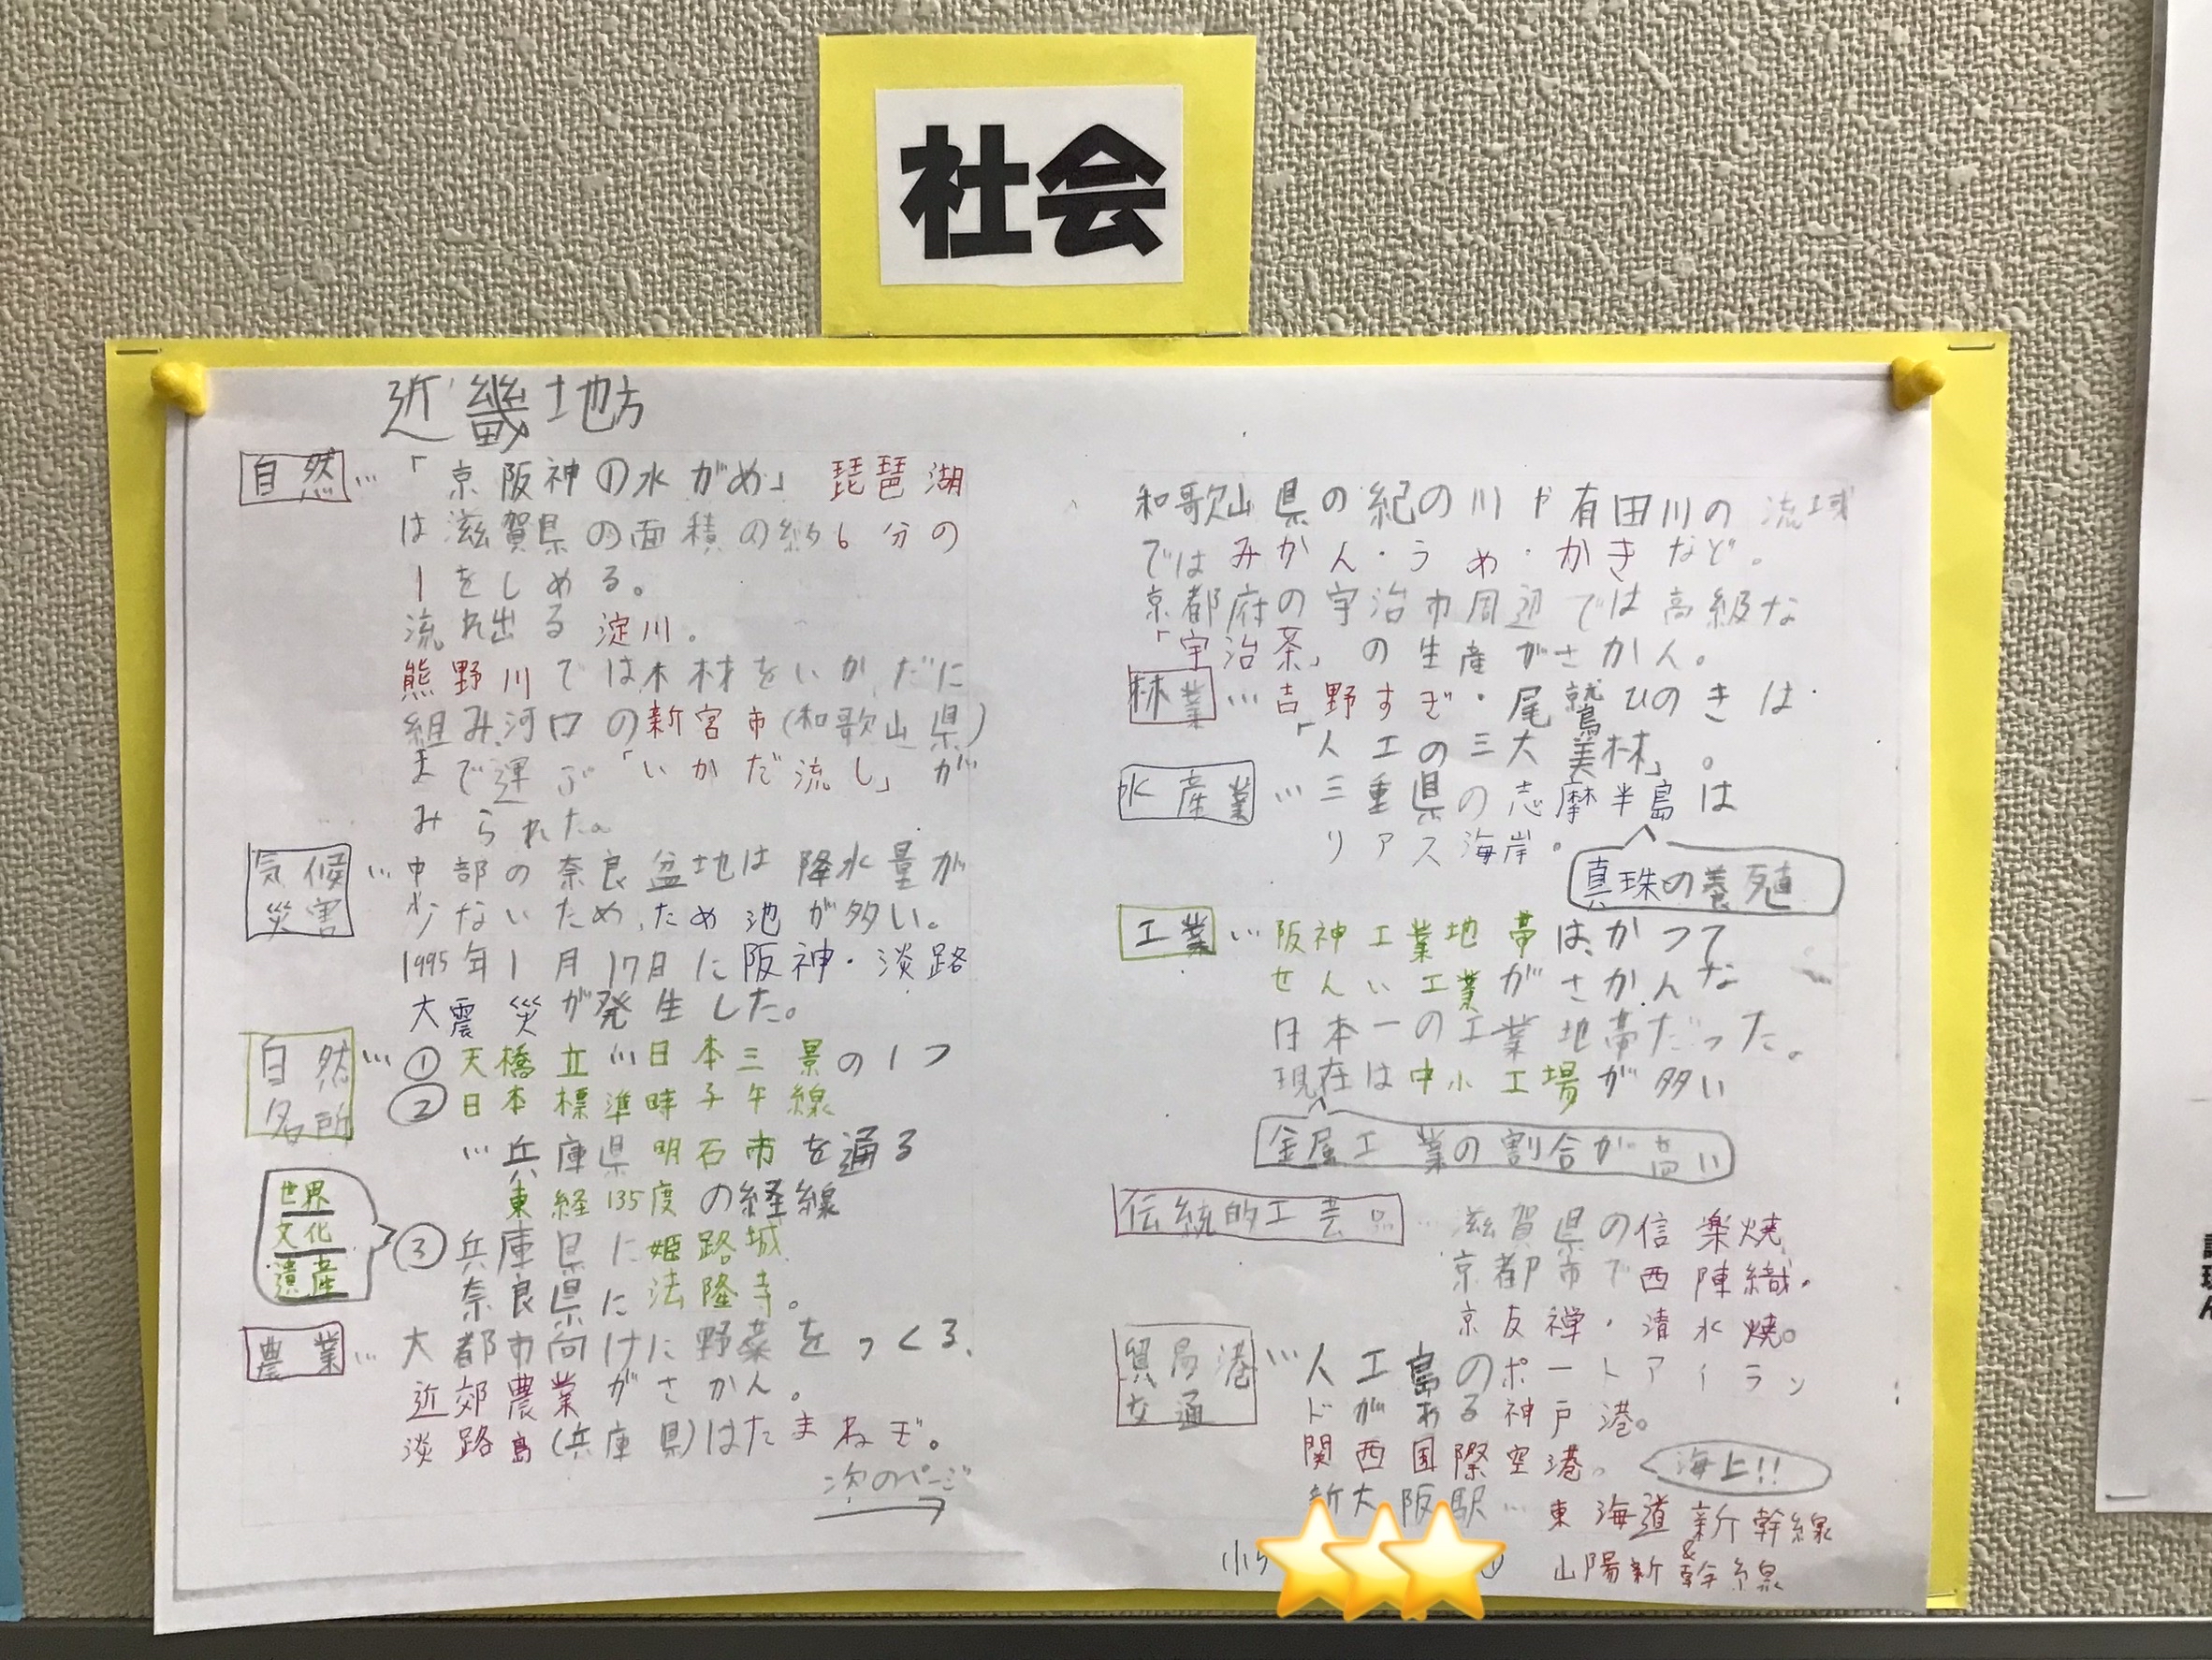 社会
近畿地方
自然…「京阪神の水がめ」琵琶湖
は滋賀県の面積の約6分の
1をしめる。
流れ出る淀川。
熊野川では木材をいかだに
組み、河口の新宮市(和歌山県)
まで運ぶ「いかだ流し」が
みられた。
気候
災害
…中部の奈良盆地は降水量が
少ないため、ため池が多い。
1995年1月17日に阪神・淡路
大震災が発生した。
自然
名所
…①天橋立…日本三景の1つ
②日本標準時子午線
…兵庫県明石市を通る
東経135度の経線
世界
文化
遺産
③兵庫県に姫路城
奈良県に法隆寺。
農業…大都市向けに野菜をつくる、
近郊農業がさかん。
淡路島(兵庫県)はたまねぎ。
次のページ
和歌山県の紀の川や有田川の流域
ではみかん・うめ・かきなど。
京都府の宇治市周辺では高級な
「宇治茶」の生産がさかん。
林業…吉野すぎ・尾鷲ひのきは
「人工の三大美林」。
水産業…三重県の志摩半島は
リアス海岸。
真珠の養殖
工業…阪神工業地帯は、かつて
せんい工業がさかんな
日本一の工業地帯だった。
現在は中小工場が多い
金属工業の割合が高い
伝統的工芸品…滋賀県の信楽焼
京都市で西陣織・
京友禅・清水焼。
貿易港
交通
…人工島のポートアイラン
ドがある神戸港。
関西国際空港。
海上!!
新大阪駅…東海道新幹線
&
山陽新幹線